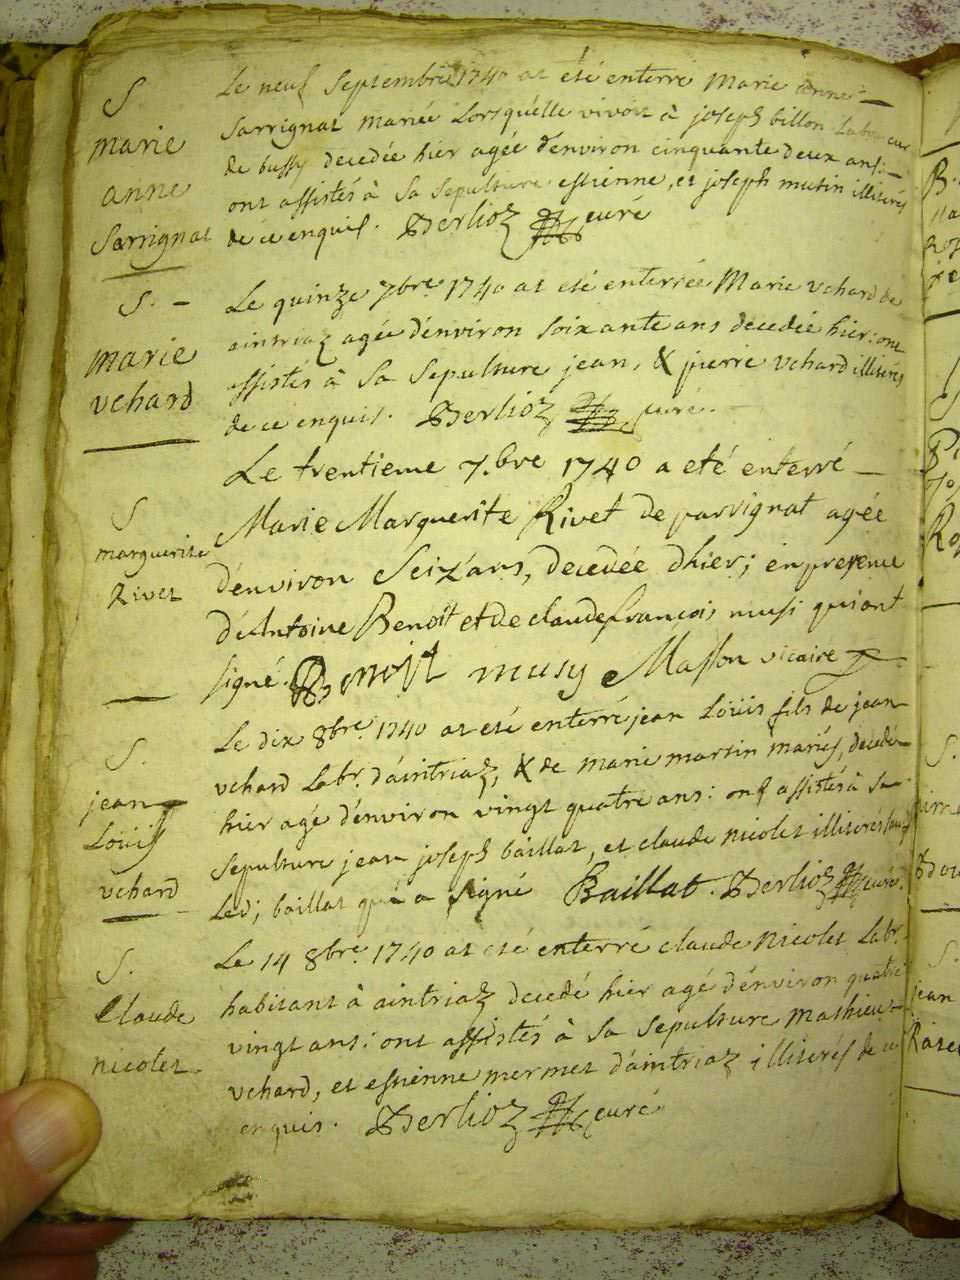 S
marie
anne
Sarrignat
Le neuf Septembre 1740 at été enterré Marie anne
Sarrignat mariée Lorsquélle vivoit à joseph billon Laboureur
de bussy decedée hier agée d'environ cinquante deux ans:
ont assistés à Sa Sepulture estienne, et joseph mutin illiterés
de ce enquis. Berlioz curé
S.
marie
vchard
Le quinze 7bre 1740 at eté enterrée Marie vchard de
aintriaz agée d'environ soixante ans decedée hier: ont
assistés à Sa Sepulture jean, & pierre vchard illiterés
de ce enquis. Berlioz curé.
S
marguerite
Rivet
Le trentieme 7.bre 1740 a eté enterré
Marie Marguerite Rivet de parvignat agée
d'environ Seiz'ans, decedée dhier; en presence
d'Antoine Benoit et de claude francois musi qui ont
signé. Benoist musy Masson vicaire
S.
jean
Loüis
vchard
Le dix 8bre 1740 at eté enterré jean Loüis fils de jean
vchard Labr. d'aintriaz, & de marie martin mariés, decedé
hier agé d'environ vingt quatre ans: ont assistés à sa
Sepulture jean joseph baillat, et claude nicolet illiterés
Led; baillat qui a signé Baillat. Berlioz curé.
S.
Claude
nicolet.
Le 14 8bre 1740 at eté enterré claude nicolet Labr.
habitant à aintriaz decedé hier agé d'environ quatre
vingt ans: ont assistés à Sa Sepulture mathieu
vchard, et estienne mermet d'aintriaz illiterés de ce
enquis. Berlioz curé